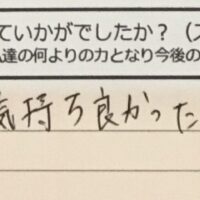 ていかがでしたか？（
達の何よりの力となり今後の
気持ち良かった